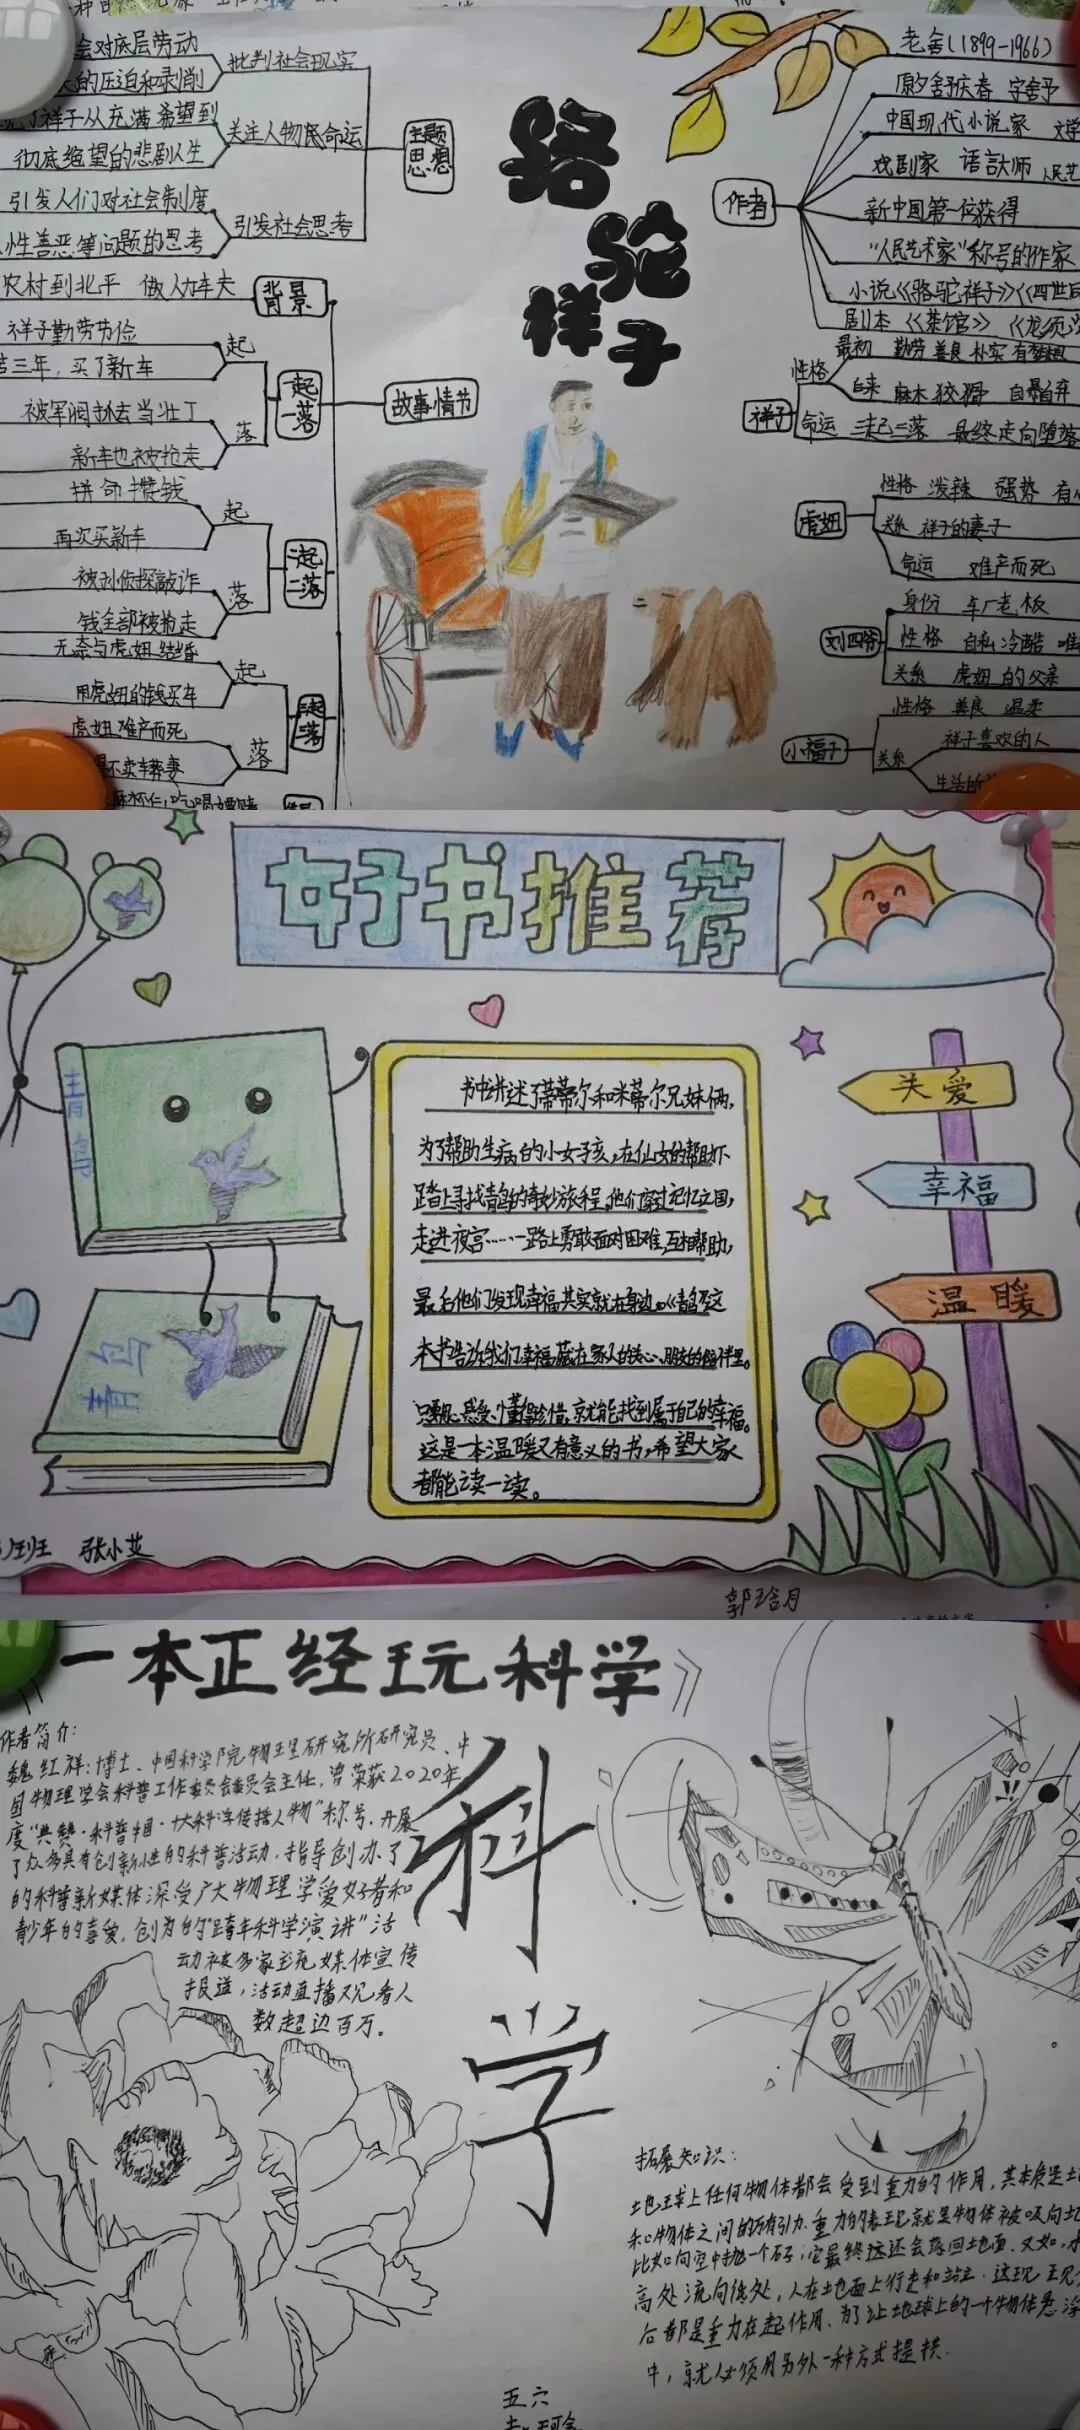 骆
驼
祥
子
主题
思想
批判社会现实
会对底层劳动
的压迫和剥削
关注人物底命运
了祥子从充满希望到
彻底绝望的悲剧人生
引发社会思考
引发人们对社会制度
性善恶等问题的思考
故事情节
背景
农村到北平 做人力车夫
一起
一落
起
祥子勤劳节俭
三年，买了新车
落
被军阀抓去当壮丁
新车也被抢走
二起
二落
起
拼命攒钱
再次买新车
落
被孙侦探敲诈
钱全部被抢走
三起
三落
起
无奈与虎妞结婚
用虎妞的钱买车
落
虎妞难产而死
不卖车葬妻
作者
老舍(1899-1966)
原名舒庆春 字舍予
中国现代小说家 文学
戏剧家 语言大师 人民艺
新中国第一位获得
“人民艺术家”称号的作家
小说《骆驼祥子》《四世同
剧本 《茶馆》 《龙须沟
祥子
性格
最初 勤劳 善良 朴实 有梦想
后来 麻木 狡猾 自暴自弃
命运 三起三落 最终走向堕落
虎妞
性格 泼辣 强势 有心
关系 祥子的妻子
命运 难产而死
刘四爷
身份 车厂老板
性格 自私 冷酷 唯
关系 虎妞的父亲
小福子
性格 善良 温柔
关系
祥子喜欢的人
好书推荐
青鸟
青鸟
书中讲述了蒂蒂尔和米蒂尔兄妹俩,
为了帮助生病的小女孩,在仙女的帮助下
踏上寻找青鸟的奇妙旅程。他们穿过记忆之国,
走进夜宫……一路上勇敢面对困难,互相帮助,
最后他们发现幸福其实就在身边。《青鸟》这
本书告诉我们幸福藏在家人的关心、朋友的陪伴里。
只要用心感受、懂得珍惜,就能找到属于自己的幸福。
这是一本温暖又有意义的书,希望大家
都能读一读。
关爱
幸福
温暖
班 张小艾
郭珆月
一本正经玩科学》
作者简介:
魏红祥:博士、中国科学院物理研究所研究员、中
国物理学会科普工作委员会委员会主任,曾荣获2020年
度“典赞·科普中国·十大科学传播人物”称号.开展
了众多具有创新性的科普活动.指导创办了
的科普新媒体深受广大物理学爱好者和
青少年的喜爱.创办的“跨年科学演讲”活
动被多家主流媒体宣传
报道,活动直播观看人
数超过百万.
科
学
拓展知识:
地球上任何物体都会受到重力的作用,其本质是地
和物体之间的万有引力.重力的表现就是物体被吸向地
比如向空中抛一个石子,它最终还会落回地面.又如,水
高处流向低处,人在地面上行走和站立.这现
后都是重力在起作用.为了让地球上的一个物体悬浮
中,就必须用另外一种方式提供.
五六